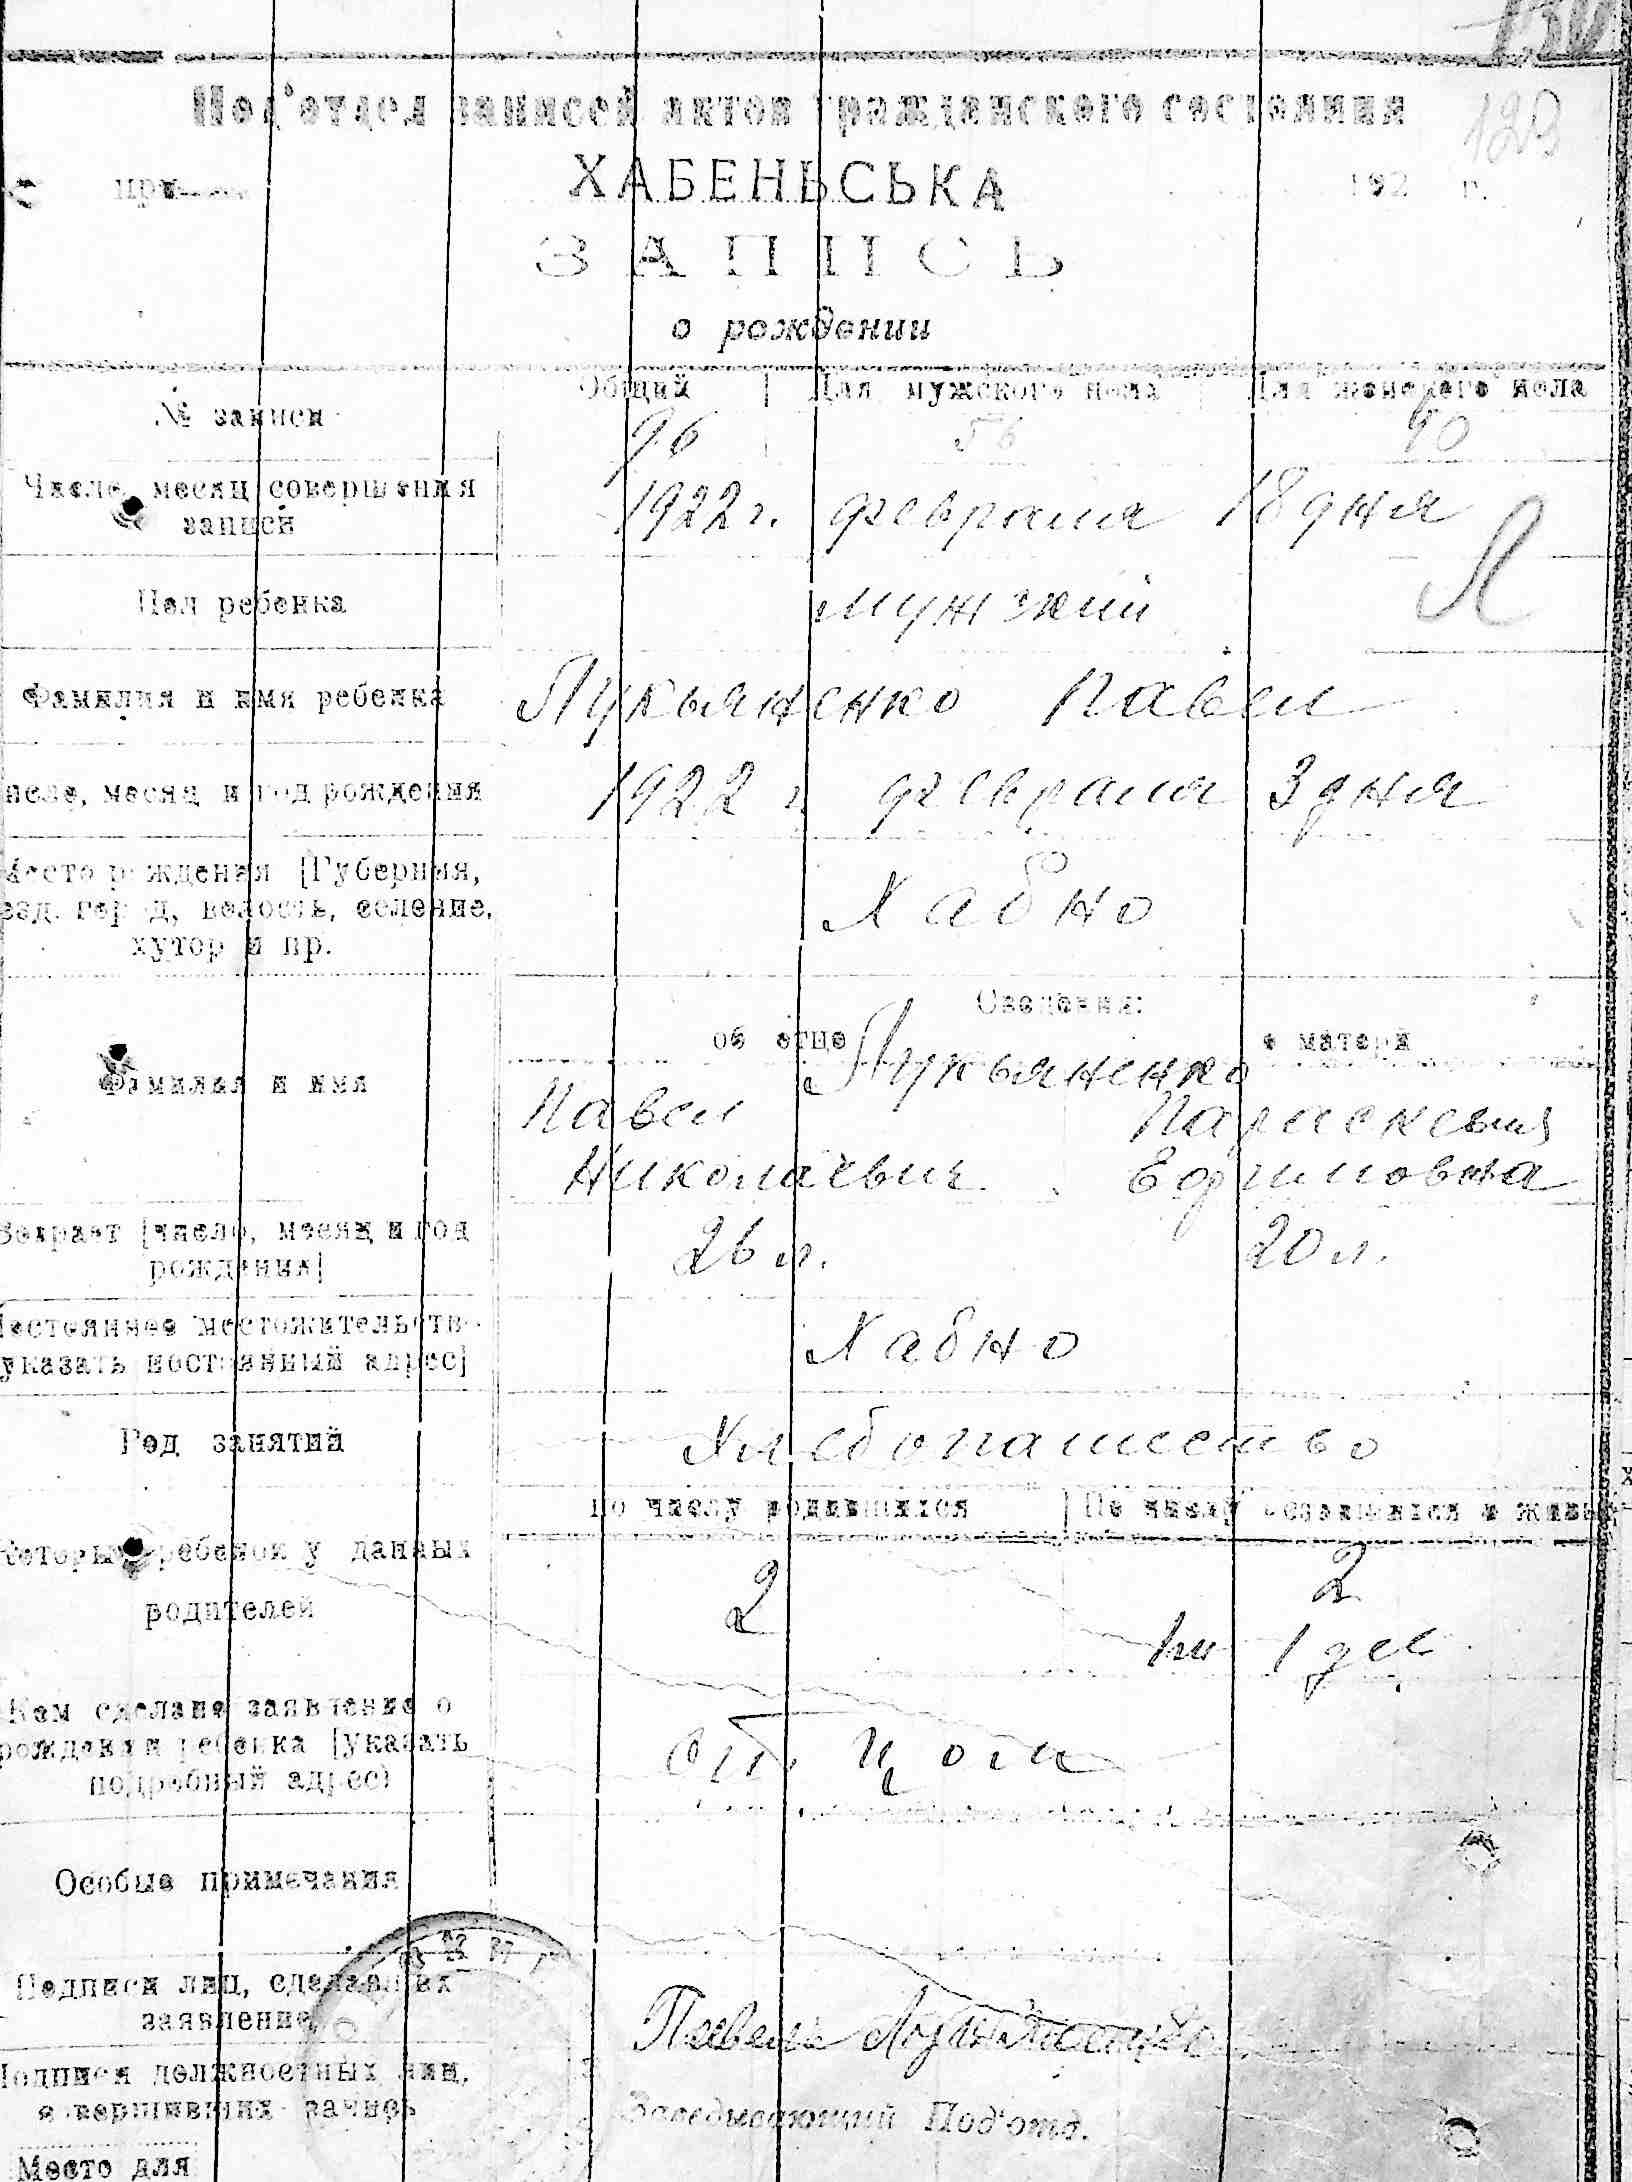 Под'отдел записей актов гражданского состояния
129
при
ХАБЕНЬСЬКА
192 г.
ЗАПИСЬ
о рождении
Общий | Для мужского пола | Для женского пола
№ записи
96 56 40
Число, месяц совершения
записи
1922 г. февраля 18 дня
Пол ребенка
мужский
Л
Фамилия и имя ребенка
Лукьяненко Павел
Число, месяц и год рождения
1922 г февраля 3 дня
Место рождения [Губерния,
уезд, город, волость, селение,
хутор и пр.
Хабно
Сведения:
об отце о матери
Фамилия и имя
Лукьяненко
Павел Параскевия
Николаевич Ефимовна
Возраст [число, месяц и год
рождения]
26 л. 20 л.
Постоянное местожительство
указать постоянный адрес]
Хабно
Род занятий
Хлебопашество
по числу родившихся | По числу оставшихся в живых
Который ребенок у данных
родителей
2 2
1м 1 дев
Кем сделано заявление о
рождении ребенка [указать
подробный адрес)
отцом
Особые примечания
Подписи лиц, сделавших
заявление
Павел Лукьяненко
Подписи должностных лиц,
совершивших запись
Заведывающий Под'отд.
Место для